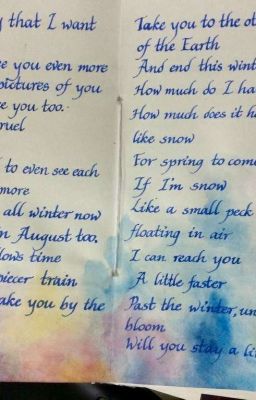 that I want
you even more
pictures of you
you too.
to even see each
more
all winter now
August too,
time
train
you by the
Take you to the
of the Earth
And end this
How much do I
How much does it
like snow
For spring to
If I'm snow
Like a small peck
floating in air
I can reach you
A little faster
Past the winter,
bloom
Will you stay a